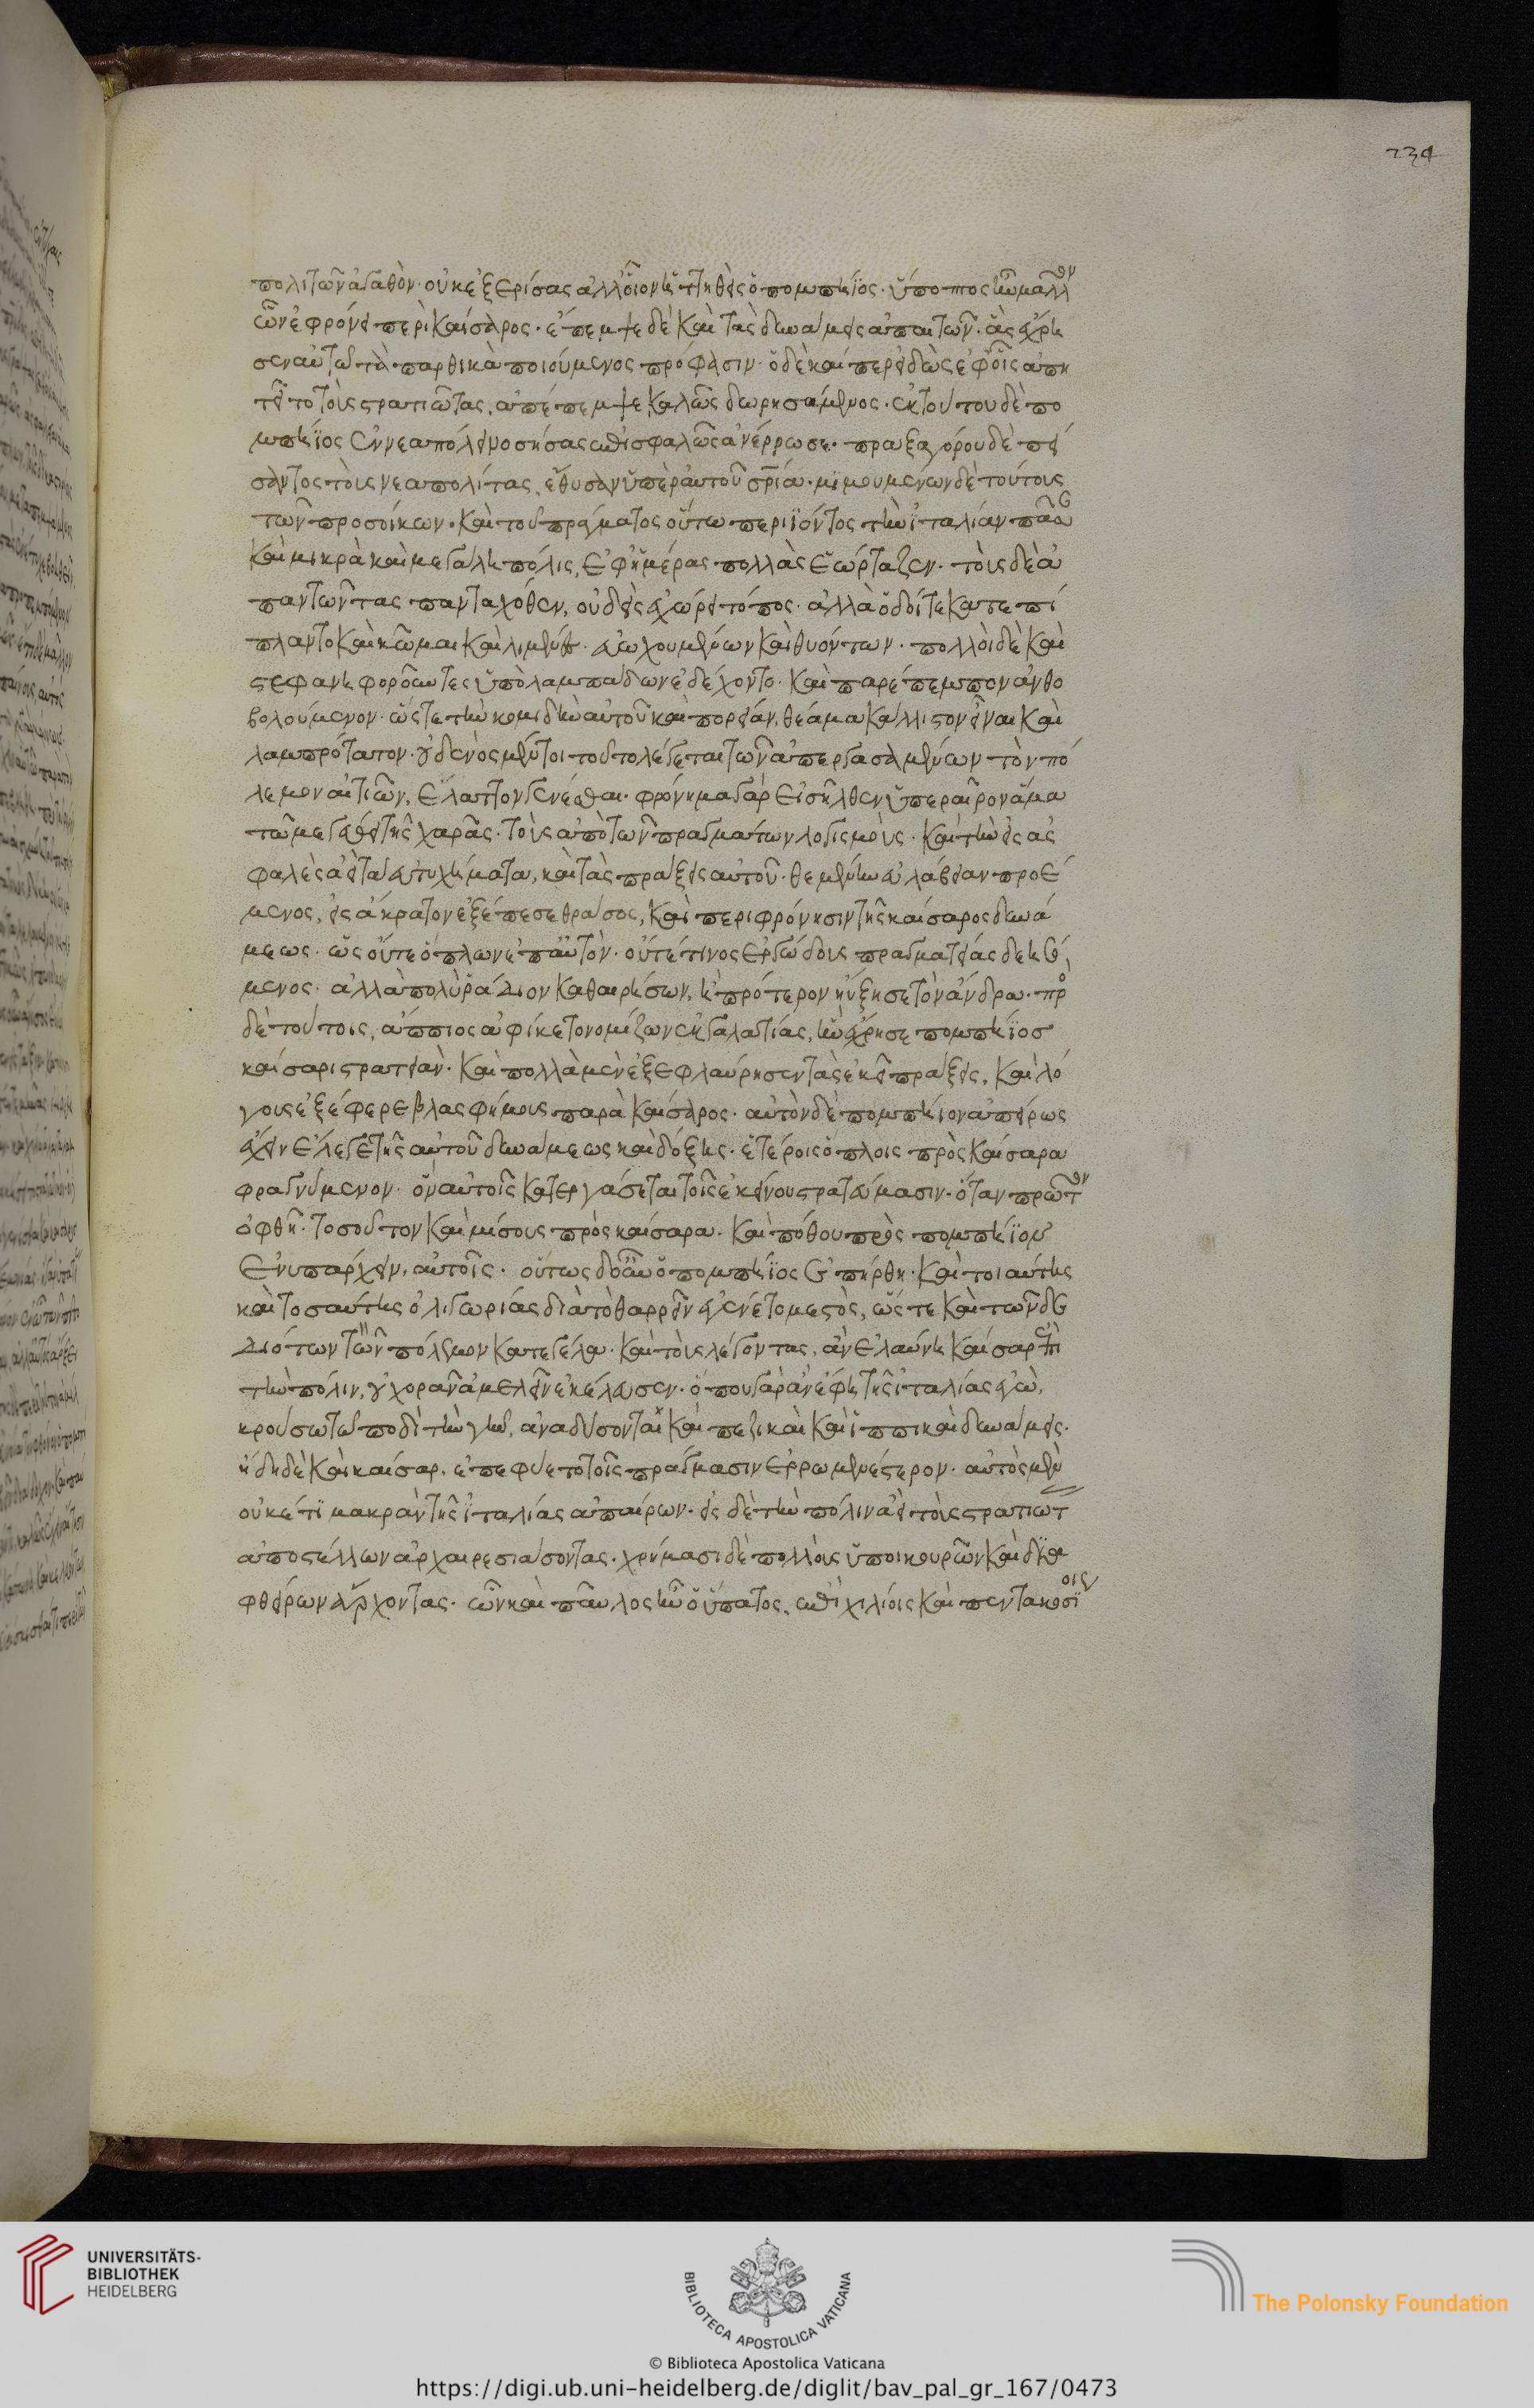 234
πολιτῶν ἀγαθὸν· οὐκ ἐξερίσας ἀλλ' οἷον ἡττηθεὶς ὁ πομπήϊος· ὕποπτος ἦν μᾶλλον
ὧν ἐφρόνει περὶ καίσαρος· ἔπεμψε δὲ καὶ τὰς δυνάμεις ἀπαιτῶν· ἃς ἔχρη
σεν αὐτῶ τὰ παρθικὰ ποιούμενος πρόφασιν· ὁ δὲ καίπερ εἰδὼς ἐφ' οἷς ἀπη
τεῖτο τοὺς στρατιώτας, ἀπέπεμψε καλῶς δωρησάμενος· ἐκ τούτου δὲ πο
μπήϊος ἐν νεαπόλει νοσήσας ἐπισφαλῶς ἀνέρρωσε· πραξαγόρου δὲ πεί
σαντος τοὺς νεαπολίτας, ἔθυσαν ὑπὲρ αὐτοῦ σωτήρια· μιμουμένων δὲ τούτους
τῶν προσοίκων· καὶ τοῦ πράγματος οὕτω περιϊόντος τὴν ἰταλίαν πᾶσαν
καὶ μικρὰ καὶ μεγάλη πόλις, ἐφ' ἡμέρας πολλὰς ἑώρταζεν· τοὺς δὲ ἀ
παντῶντας πανταχόθεν, οὐδεὶς ἐχώρει τόπος· ἀλλὰ ὁδοί τε κατεπί
πλαντο καὶ κῶμαι καὶ λιμένες· εὐωχουμένων καὶ θυόντων· πολλοὶ δὲ καὶ
στεφανηφοροῦντες ὑπὸ λαμπάδων ἐδέχοντο· καὶ παρέπεμπον ἀνθο
βολούμενον· ὥστε τὴν κομιδὴν αὐτοῦ καὶ πορείαν, θέαμα κάλλιστον εἶναι καὶ
λαμπρότατον· οὐδενὸς μέντοι τοῦτο λέγεται τῶν ἀπεργασαμένων τὸν πό
λεμον αἰτιῶν, ἔλαττον γενέσθαι· φρόνημα γὰρ εἰσῆλθεν ὑπεραῖρον ἅμα
τῶ μεγέθει τῆς χαρᾶς· τοὺς ἀπὸ τῶν πραγμάτων λογισμοὺς· καὶ τὴν εἰς ἀσ
φαλὲς ἀεὶ τὰ εὐτυχήματα, καὶ τὰς πράξεις αὐτοῦ· θεμένην εὐλάβειαν προέ
μενος, εἰς ἄκρατον ἐξέπεσε θράσος, καὶ περιφρόνησιν τῆς καίσαρος δυνά
μεως· ὡς οὔτε ὅπλων ἐπ' αὐτὸν· οὔτέ τινος ἐργώδους πραγματείας δεησό
μενος· ἀλλὰ πολὺ ῥάδιον καθαιρήσων, ἢ πρότερον ηὔξησε τὸν ἄνδρα· πρὸς
δὲ τούτοις, ἄππιος ἀφίκετο νομίζων ἐκ γαλατίας, ἣν ἔχρησε πομπήϊος
καίσαρι στρατιάν· καὶ πολλὰ μὲν ἐξεφλαύρησεν τὰς ἐκεῖ πράξεις, καὶ λό
γους ἐξέφερε βλασφήμους παρὰ καίσαρος· αὐτὸν δὲ πομπήϊον ἀπείρως
ἔχειν ἔλεγε τῆς αὐτοῦ δυνάμεως καὶ δόξης· ἑτέροις ὅπλοις πρὸς καίσαρα
φραγνύμενον· ὃν αὐτοῖς κατεργάσεται τοῖς ἐκείνου στρατεύμασιν· ὅταν πρῶτον
ὀφθῆ· τοσοῦτον καὶ μίσους πρὸς καίσαρα· καὶ πόθου πρὸς πομπήϊον
ἐνυπάρχειν, αὐτοῖς· οὕτως δ' οὖν ὁ πομπήϊος ἐπήρθη· καὶ τοιαύτης
καὶ τοσαύτης ὀλιγωρίας διὰ τὸ θαρρεῖν ἐγένετο μεστὸς, ὥστε καὶ τῶν δε
διότων τὸν πόλεμον κατεγέλα· καὶ τοὺς λέγοντας, ἂν ἐλαύνη καίσαρ ἐπὶ
τὴν πόλιν, οὐχ ὁρᾶν ἀμελεῖν ἐκέλευσεν· ὅπου γὰρ ἂν ἔφη τῆς ἰταλίας ἐγὼ,
κρούσω τῶ ποδὶ τὴν γῆν, ἀναδύσονται καὶ πεζικαὶ καὶ ἱππικαὶ δυνάμεις·
ἤδη δὲ καὶ καίσαρ, ἐπεφύετο τοῖς πράγμασιν ἐρρωμενέστερον· αὐτὸς μὲν
οὐκέτι μακρὰν τῆς ἰταλίας ἀπαίρων· εἰς δὲ τὴν πόλιν ἀεὶ τοὺς στρατιώτ
ἀποστέλλων ἀρχαιρεσιάσοντας· χρήμασι δὲ πολλοὺς ὑποικουρῶν καὶ δια
φθείρων ἄρχοντας· ὧν καὶ παῦλος ἦν ὁ ὕπατος, ἐπὶ χιλίοις καὶ πεντακοσίοις
UNIVERSITÄTS-
BIBLIOTHEK
HEIDELBERG
BIBLIOTECA APOSTOLICA VATICANA
The Polonsky Foundation
© Biblioteca Apostolica Vaticana
https://digi.ub.uni-heidelberg.de/diglit/bav_pal_gr_167/0473